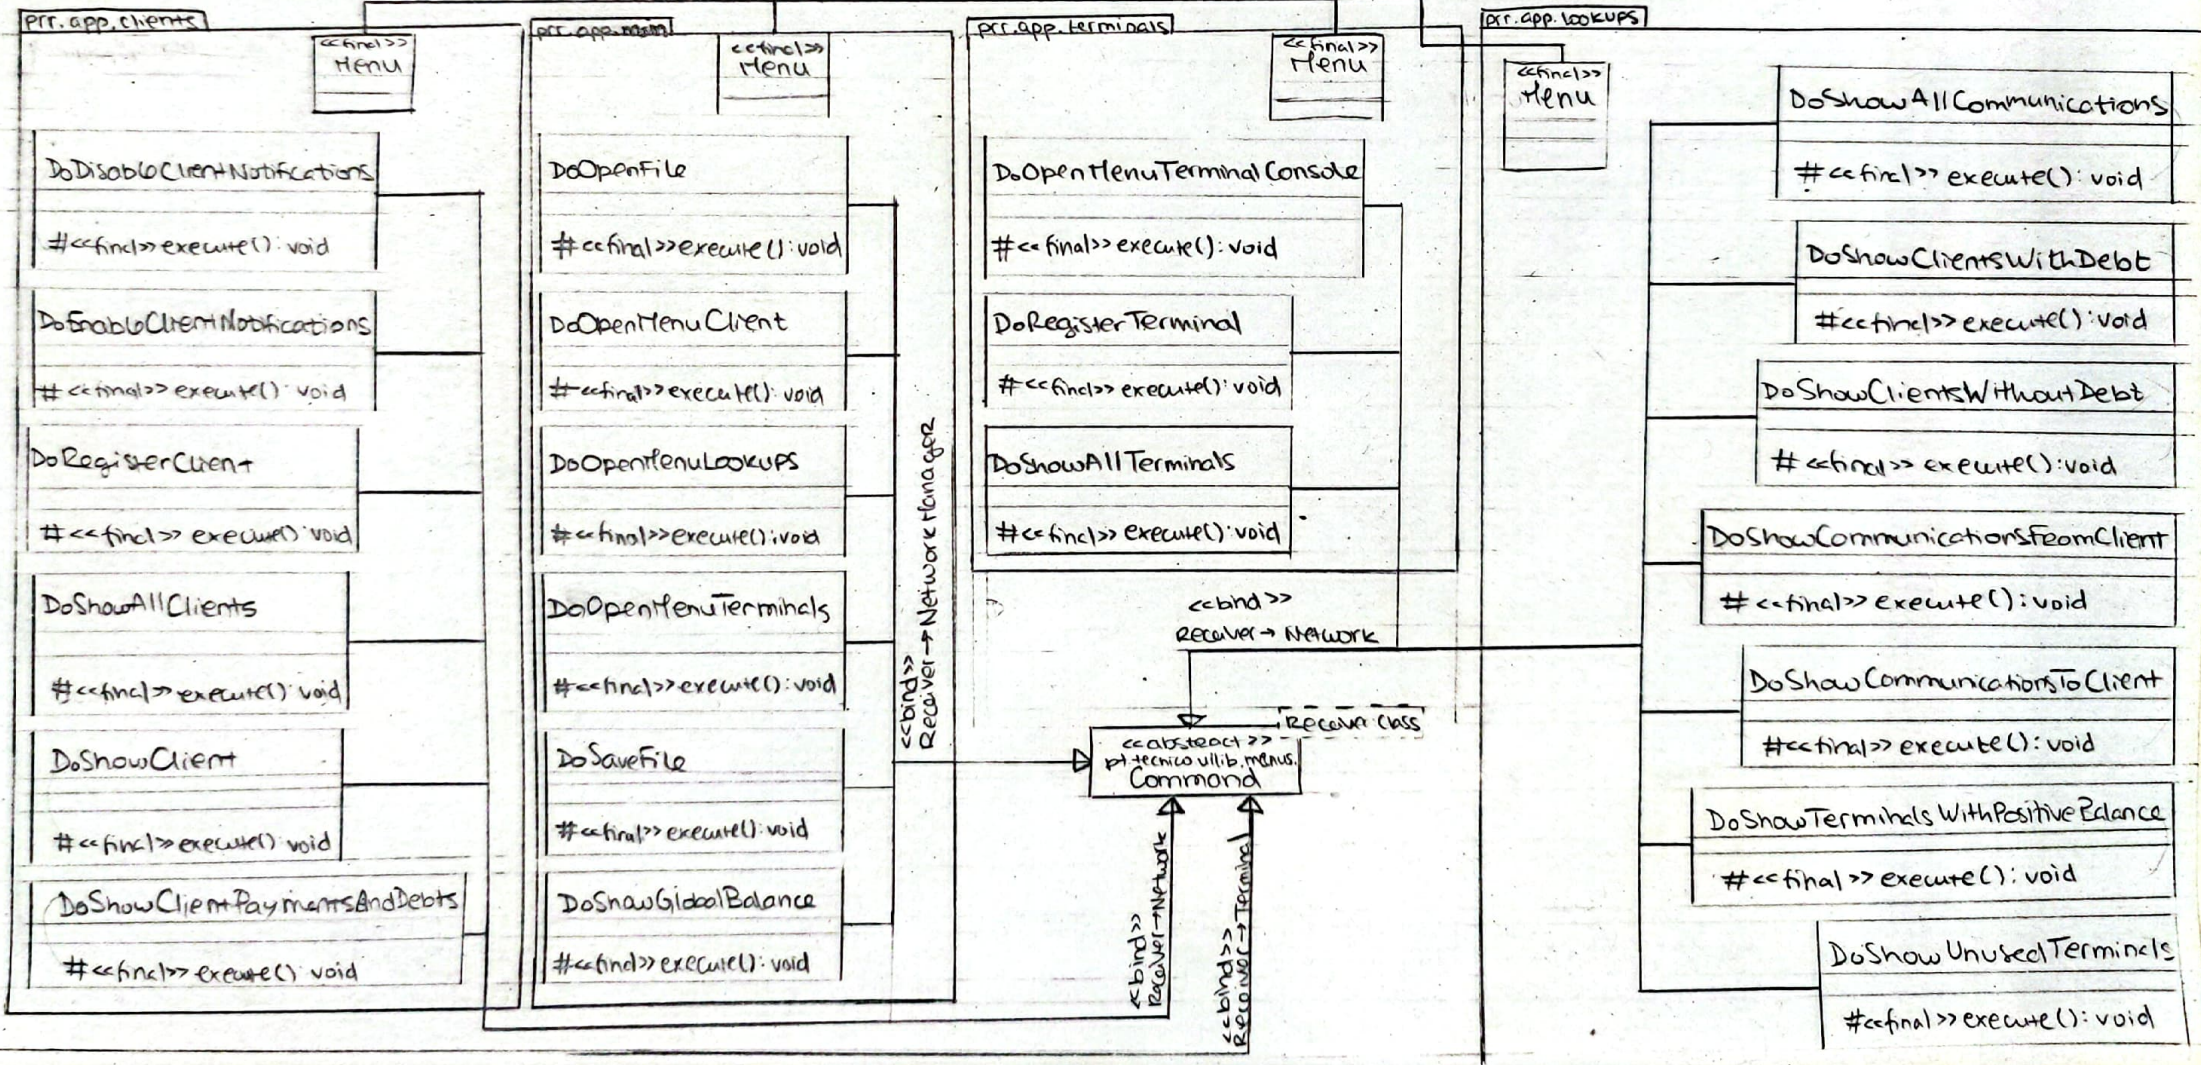 prr.app.clients
<<final>>
Menu
DoDisableClientNotifications
#<<final>>execute(): void
DoEnableClientNotifications
#<<final>>execute(): void
DoRegisterClient
#<<final>> execute(): void
DoShowAllClients
#<<final>> execute(): void
DoShowClient
#<<final>> execute(): void
DoShowClientPaymentsAndDebts
#<<final>> execute(): void
prr.app.main
<<final>>
Menu
DoOpenFile
#<<final>>execute(): void
DoOpenMenuClient
#<<final>>execute(): void
DoOpenMenuLookups
#<<final>>execute():void
DoOpenMenuTerminals
#<<final>>execute(): void
DoSaveFile
#<<final>> execute(): void
DoShowGlobalBalance
#<<final>> execute(): void
<<bind>>
Receiver→NetworkManager
prr.app.terminals
<<final>>
Menu
DoOpenMenuTerminalConsole
#<<final>>execute(): void
DoRegisterTerminal
#<<final>> execute(): void
DoShowAllTerminals
#<<final>> execute(): void
<<bind>>
Receiver→ Network
Receiver:Class
<<abstract>>
pt.tecnico.uilib.menus.
Command
<<bind>>
Receiver→Network
<<bind>>
Receiver→Terminal
prr.app.lookups
<<final>>
Menu
DoShowAllCommunications
#<<final>> execute(): void
DoShowClientsWithDebt
#<<final>> execute(): void
DoShowClientsWithoutDebt
#<<final>> execute():void
DoShowCommunicationsFromClient
#<<final>> execute(): void
DoShowCommunicationsToClient
#<<final>> execute(): void
DoShowTerminalsWithPositiveBalance
#<<final>> execute(): void
DoShowUnusedTerminals
#<<final>> execute(): void